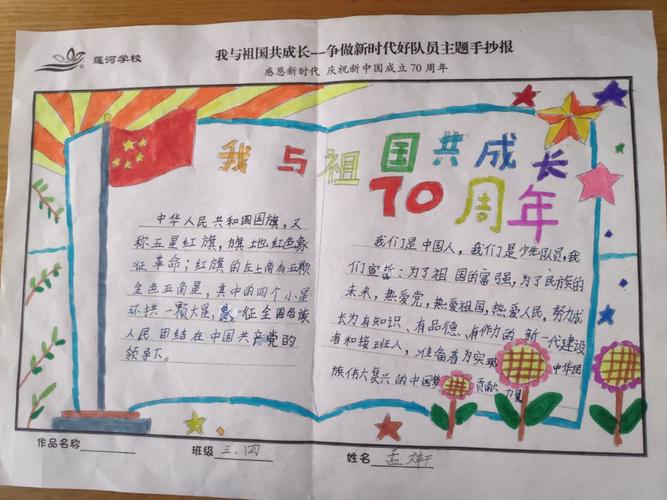 莲河学校
我与祖国共成长---争做新时代好队员主题手抄报
感恩新时代 庆祝新中国成立70周年
我与祖国共成长
70周年
中华人民共和国国旗，又
称五星红旗，旗地红色象
征革命；红旗的左上角有五颗
金色五角星，其中的四个小星
环拱一颗大星，象征全国各族
人民团结在中国共产党的
领导下。
我们是中国人，我们是少先队员，我
们宣誓：为了祖国的富强，为了民族的
未来，热爱党，热爱祖国，热爱人民，努力成
长为有知识、有品德、有作为的新一代建设
者和接班人，准备着为实现中华民
族伟大复兴的中国梦贡献力量
作品名称
班级 三、四
姓名 孟